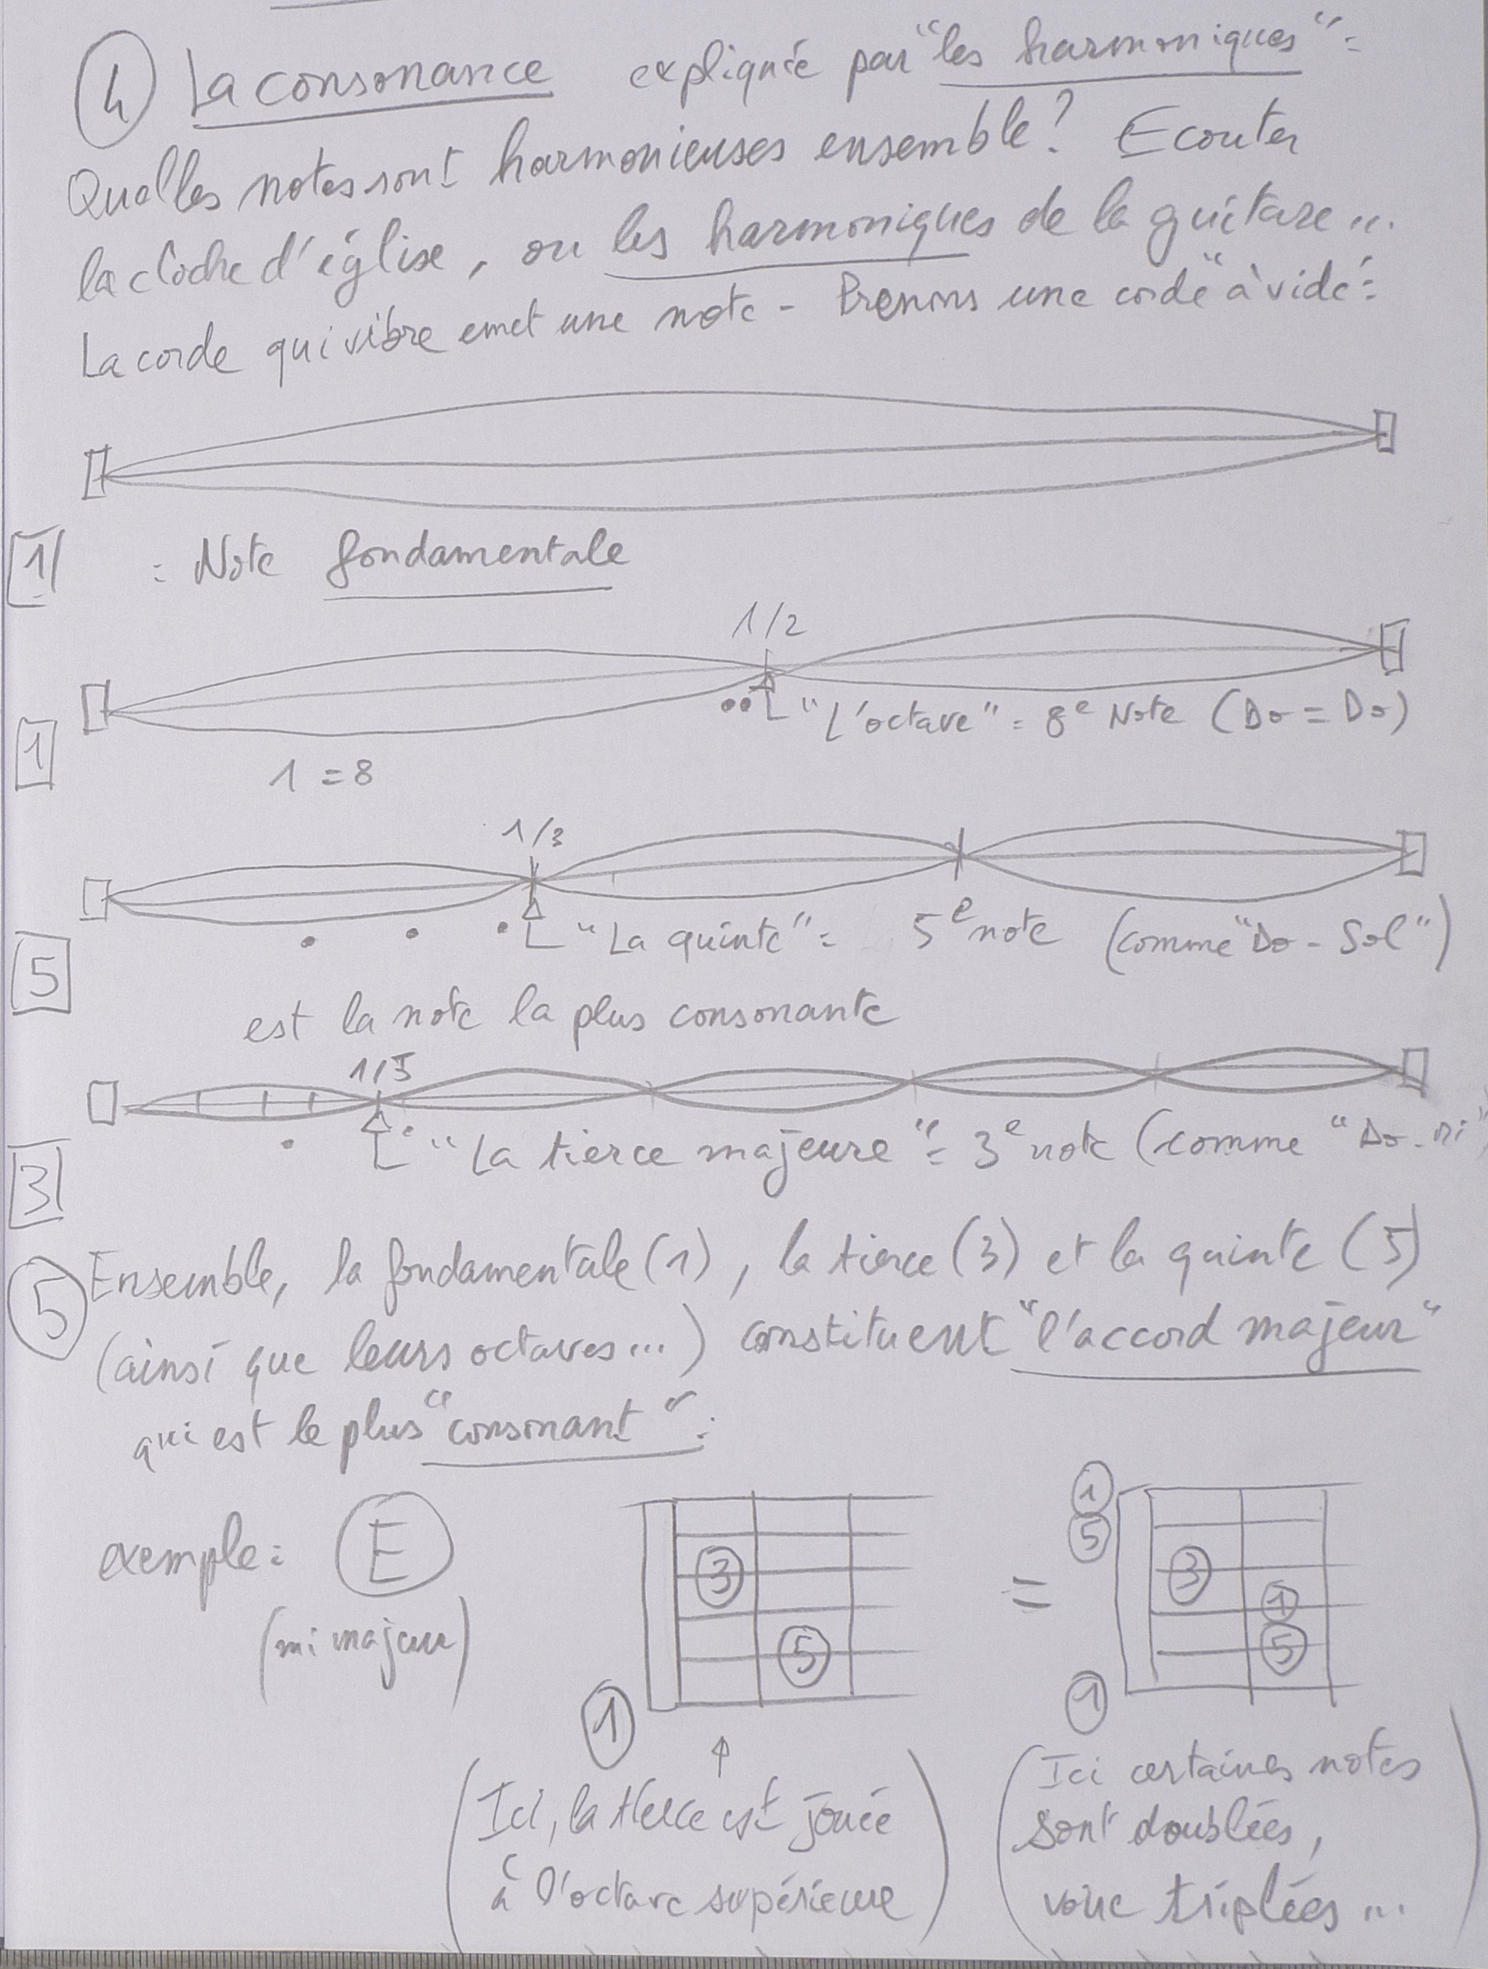 4 La consonance expliquée par "les harmoniques" :
Quelles notes sont harmonieuses ensemble ? Ecouter
la cloche d'église, ou les harmoniques de la guitare...
La corde qui vibre emet une note - Prenons une corde "à vide" :
1 : Note fondamentale
1/2
"L'octave" = 8e Note (Do = Do)
1
1 = 8
1/3
"La quinte" = 5e note (comme "Do - Sol")
5
est la note la plus consonante
1/5
"La tierce majeure" = 3e note (comme "Do - mi"
3
5 Ensemble, la fondamentale (1), la tierce (3) et la quinte (5)
(ainsi que leurs octaves...) constituent "l'accord majeur"
qui est le plus "consonant" :
exemple : E
(mi majeur)
3
5
1
=
1
5
3
1
5
1
(Ici, la tierce est jouée
à l'octave supérieure)
(Ici certaines notes
sont doublées,
voire triplées...)